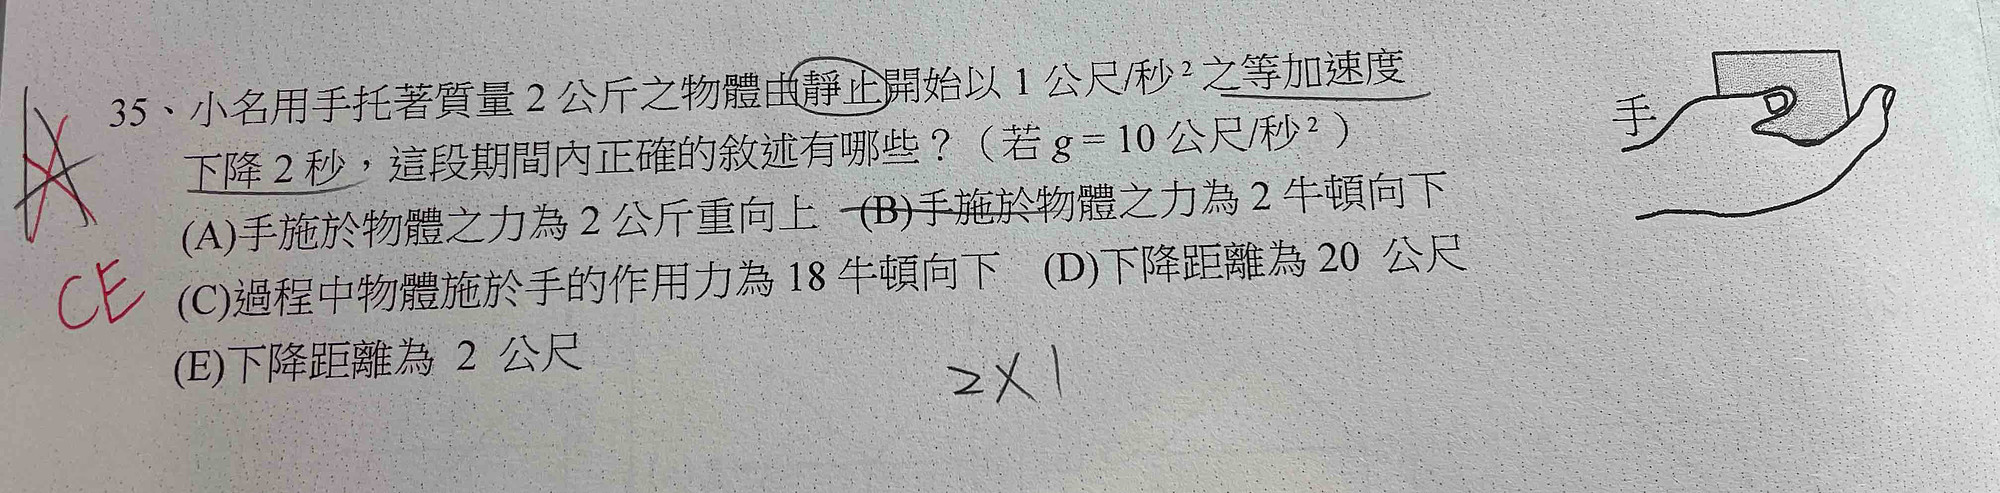 35、小名用手托著質量 2 公斤之物體由靜止開始以 1 公尺/秒² 之等加速度
下降 2 秒，這段期間內正確的敘述有哪些？（若 g = 10 公尺/秒²）
(A)手施於物體之力為 2 公斤重向上 (B)手施於物體之力為 2 牛頓向下
(C)過程中物體施於手的作用力為 18 牛頓向下 (D)下降距離為 20 公尺
(E)下降距離為 2 公尺
手
A
CE
2×1